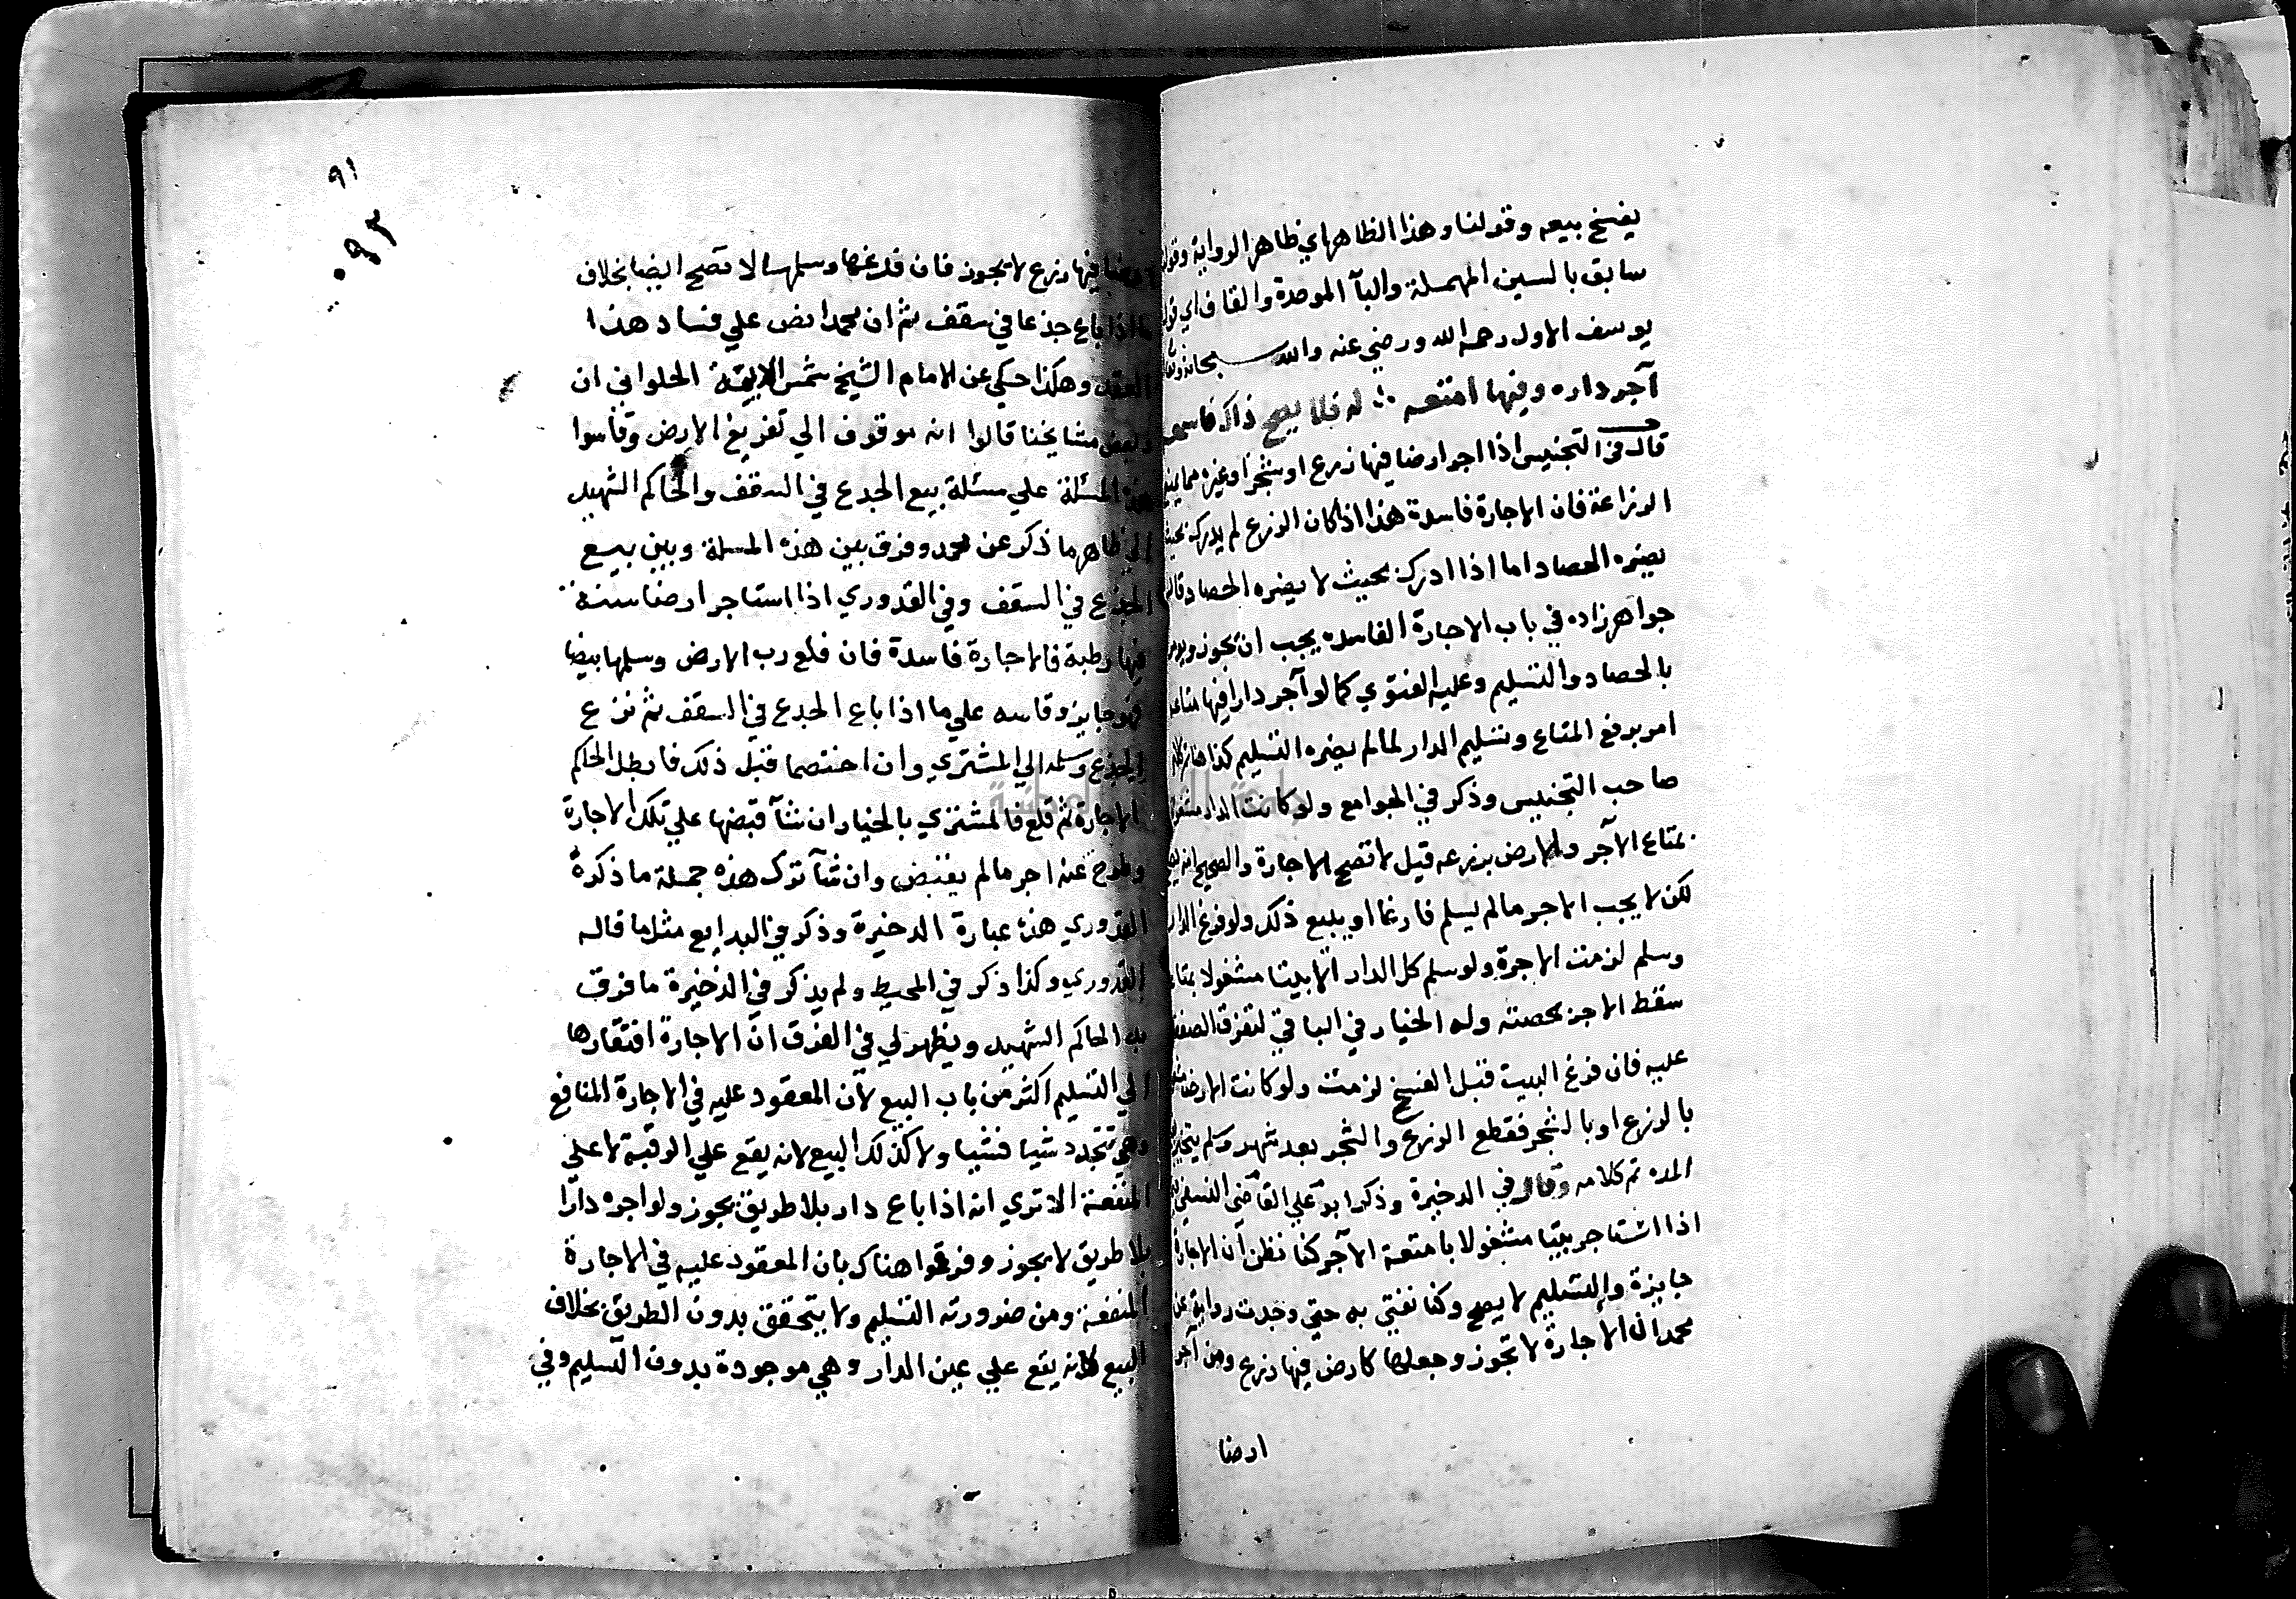 يفسخ بيعه وقولنا وهذا الظاهر اي ظاهر الرواية
سابق بالسين المهملة والبآ الموحدة والقاف اي
يوسف الاول رحمه الله ورضي عنه والله سبحانه
آجر داره وفيها امتعه له فلا يصح ذاك
قال في التجنيس اذا اجر ارضا فيها زرع او شجر او غيره مما يمنع
الزراعة فان الاجارة فاسدة هذا اذا كان الزرع لم يدرك بحيث
يضره الحصاد اما اذا ادرك بحيث لا يضره الحصاد قال
جواهرزاده في باب الاجارة الفاسده يجب ان تجوز ويومر
بالحصاد والتسليم وعليه الفتوي كما لو آجر دارا فيها متاعه
امر برفع المتاع وتسليم الدار لما لم يضره التسليم كذا هنا
صاحب التجنيس وذكر في الجوامع ولو كانت الدار مشغولة
بمتاع الآجر والارض بزرعه قيل لا تصح الاجارة والصحيح انه يصح
لكن لا يجب الاجر ما لم يسلم فارغا او يبيع ذلك ولو فرغ الدار
وسلم لزمت الاجرة ولو سلم كل الدار الا بيتا مشغولا بمتاعه
سقط الاجر بحصته وله الخيار في الباقي لتفرق الصفقة
عليه فان فرغ البيت قبل الفسخ لزمت ولو كانت الارض
بالزرع او بالشجر فقطع الزرع والشجر بعد شهر وسلم
المده تم كلامه وقال في الذخيرة وذكر ابو علي القاضي النسفي
اذا استاجر بيتا مشغولا بامتعة الآجر كنا نظن ان الاجارة
جايزة والتسليم لا يصح وكنا نفتي به حتي وجدت رواية عن
محمد ان الاجارة لا تجوز وجعلها كارض فيها زرع ومن آجر
ارضا
٩١
٠٩٣
ارضا فيها زرع لا يجوز فان قد غها وسلمها لا تصح ايضا بخلاف
ما اذا باع جذعا في سقف ثم ان محمدا نص علي فساد هذا
العقد وهكذا حكي عن الامام الشيخ شمس الايمة الحلواني ان
بعض مشايخنا قالوا انه موقوف الي تفريغ الارض وقاسوا
هذه المسئلة علي مسئلة بيع الجدع في السقف والحاكم الشهيد
الي ظاهر ما ذكر عن محمد وفرق بين هذه المسلة وبين بيع
الجذع في السقف وفي القدوري اذا استاجر ارضا سنة
فيها رطبة فالاجارة فاسدة فان قلع رب الارض وسلمها بيضا
فهو جايز وقاسه علي ما اذا باع الجدع في السقف ثم نزع
الجذع وسلمه الي المشتري وان اختصما قبل ذلك فابطل الحاكم
الاجارة ثم قلع فالمشتري بالخيار ان شآ قبضها علي تلك الاجارة
وطرح عنه اجر مالم يقبض وان شآ ترك هذه جملة ما ذكره
القدوري هذه عبارة الدخيرة وذكر في البدايع مثل ما قاله
القدوري وكذا ذكر في المحيط ولم يذكر في الذخيرة ما فرق
به الحاكم الشهيد ويظهر لي في الفرق ان الاجارة افتقارها
الي التسليم اكثر من باب البيع لان المعقود عليه في الاجارة المنافع
وهي تتجدد شيا فشيا ولا كذلك البيع لانه يقع علي الرقبة لا علي
المنفعة الا تري انه اذا باع دار بلا طريق يجوز ولو اجره دارا
بلا طريق لا يجوز وفرقوا هناك بان المعقود عليه في الاجارة
المنفعة ومن ضرورته التسليم ولا يتحقق بدون الطريق بخلاف
البيع لانه يقع علي عين الدار وهي موجودة بدون التسليم وفي